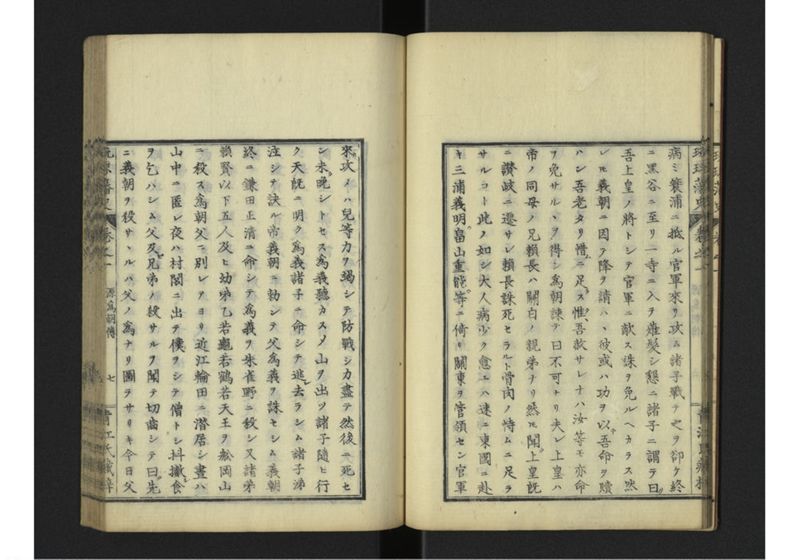 病ミ簑浦ニ抵ル官軍來リ攻ム諸子戰テ之ヲ卻ケ終
ニ黒谷ニ至リ一寺ニ入テ薙髪シ懇ニ諸子ニ謂テ曰
吾上皇ノ將トシテ官軍ニ敵ス誅ヲ免ルヘカラス然
レヒ義朝ニ因テ降ヲ請ハヽ彼或ハ功ヲ以吾命ヲ贖
ハン吾老タリ惜ニ足ス惟吾赦サレナハ汝等モ亦命
ヲ免サルヽヲ得シ爲朝諫テ曰不可ナリ夫レ上皇ハ
帝ノ同母ノ兄賴長ハ關白ノ親弟ナリ然ヒ聞上皇既
ニ讃岐ニ遷サレ賴長誅死セラルト骨肉ノ恃ムニ足ラ
サルコト此ノ如シ大人病少ク愈エハ速ニ東國ニ赴
キ三浦義明畠山重能等ニ倚リ關東ヲ管領セン官軍
來攻メハ兒等力ヲ竭シテ防戰シカ盡テ然後ニ死セ
ン未晩シトセス爲義聽カスメ山ヲ出ツ諸子隨ヒ行
ク天既ニ明ク爲義諸子ニ命シテ逃去ラシム諸子涕
泣シテ訣ル帝義朝ニ勅シテ父爲義ヲ誅セシム義朝
終ニ鎌田正清ニ命シテ爲義ヲ朱雀野ニ殺シ又諸弟
賴賢以下五人及ヒ幼弟乙若龜若鶴若天王ヲ舩岡山
ニ殺ス爲朝父ニ別レテヨリ近江輪田ニ潜居シ晝ハ
山中ニ匿レ夜ハ村閭ニ出テ僕ヲシテ僧トシ抖擻食
ヲ乞ハシム父及兄弟ノ殺サルヲ聞テ切齒シテ曰先
ニ義朝ヲ殺サヽルハ父ノ爲ナリ圖ラサリキ今日父
琉球藩史 卷之一 源爲朝傳 七